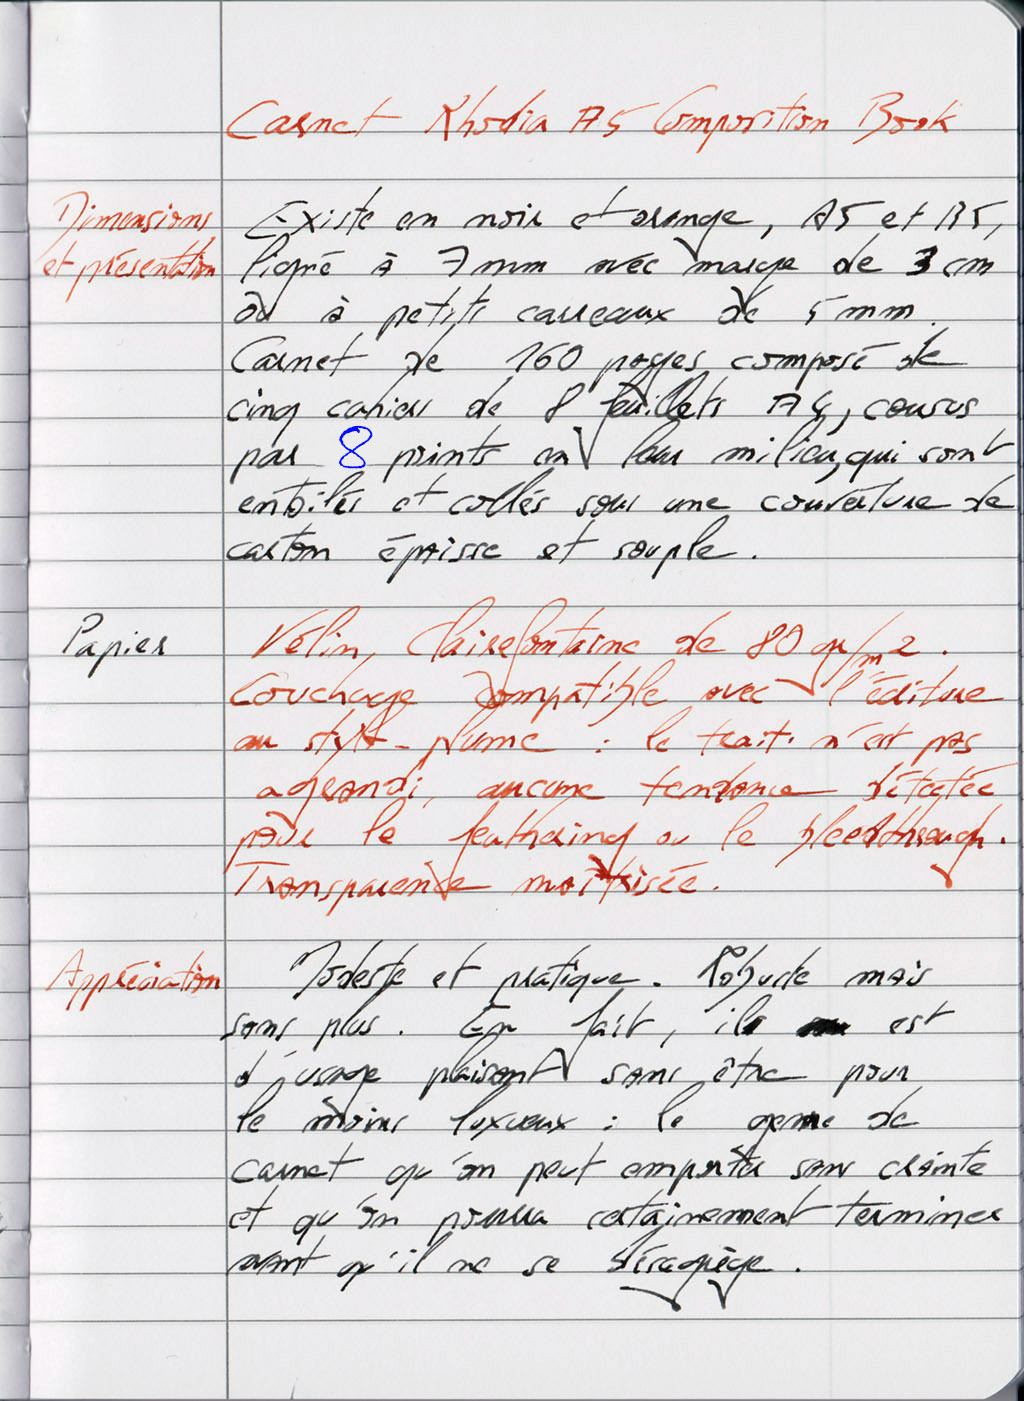 Carnet Rhodia A5 Composition Book
Dimensions
et présentation
Existe en noir et orange, A5 et B5,
ligné à 7 mm avec marge de 3 cm
ou à petits carreaux de 5 mm.
Carnet de 160 pages composé de
cinq cahiers de 8 feuillets A4, cousus
par 8 points en leur milieu, qui sont
entoilés et collés sous une couverture de
carton épaisse et souple.
Papier
Vélin, Clairefontaine de 80 gr/m2.
Couchage compatible avec l'écriture
au stylo-plume : le trait n'est pas
agrandi, aucune tendance détectée
pour le feathering ou le bleedthrough.
Transparence maîtrisée.
Appréciation
Modeste et pratique. Robuste mais
sans plus. En fait, il est
d'usage plaisant sans être pour
le moins luxueux : le genre de
carnet qu'on peut emporter sans crainte
et qu'on pourra certainement terminer
avant qu'il ne se désagrège.